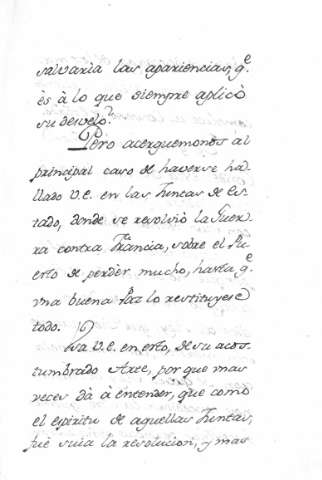 salvaria las apariencias, q.e
ès à lo que siempre aplicò
su desvelo.
Pero acerquemonos al
principal caso de haverse ha-
llado V.E. en las Juntas de Es-
tado, donde se resolviò la Guer-
ra contra Francia, sobre el Pu-
erto de perdèr mucho, hasta q.e
vna buena Paz lo restituyese
todo.
Vsa V.E. en esto, de su acos-
tumbrado Arte, por que mas
veces dà à entender, que como
el espiritu de aquellas Juntas,
fuè suia la resolucion, y mas